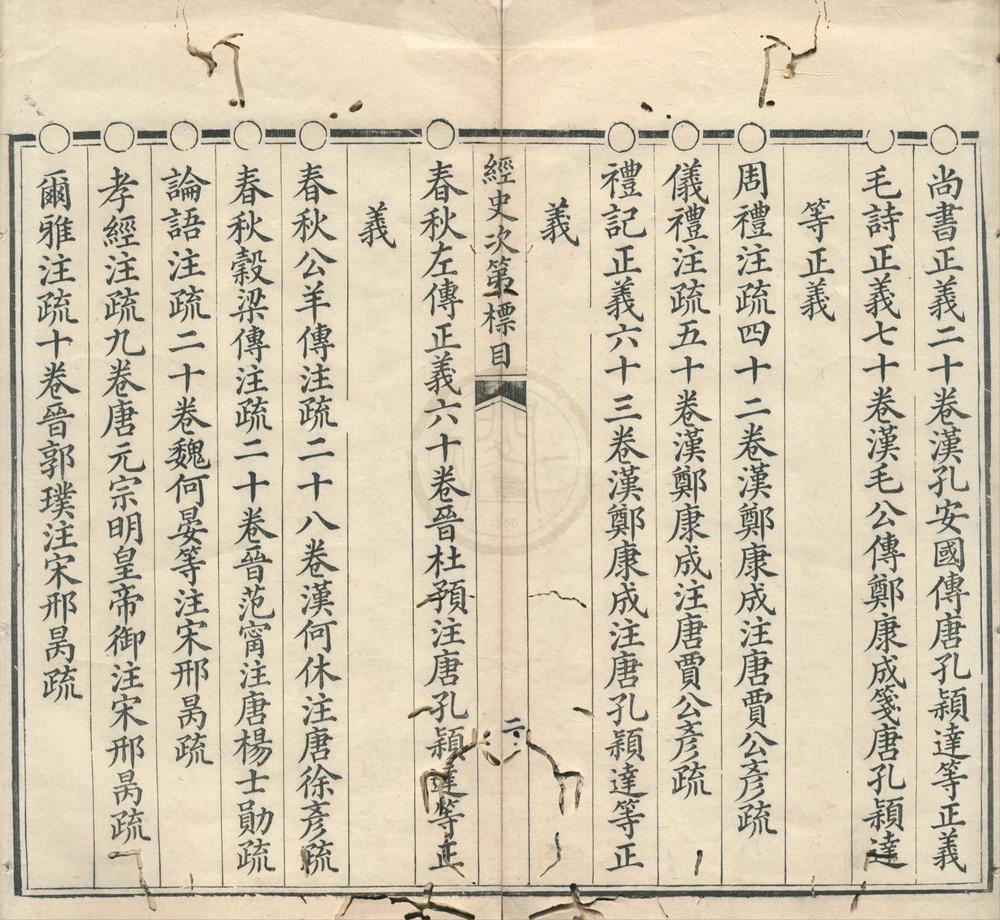 尚書正義二十卷漢孔安國傳唐孔穎達等正義
毛詩正義七十卷漢毛公傳鄭康成箋唐孔穎達
等正義
周禮注疏四十二卷漢鄭康成注唐賈公彥疏
儀禮注疏五十卷漢鄭康成注唐賈公彥疏
禮記正義六十三卷漢鄭康成注唐孔穎達等正
義
經史次第標目
二
春秋左傳正義六十卷晉杜預注唐孔穎達等正
義
春秋公羊傳注疏二十八卷漢何休注唐徐彥疏
春秋穀梁傳注疏二十卷晉范甯注唐楊士勛疏
論語注疏二十卷魏何晏等注宋邢昺疏
孝經注疏九卷唐元宗明皇帝御注宋邢昺疏
爾雅注疏十卷晉郭璞注宋邢昺疏